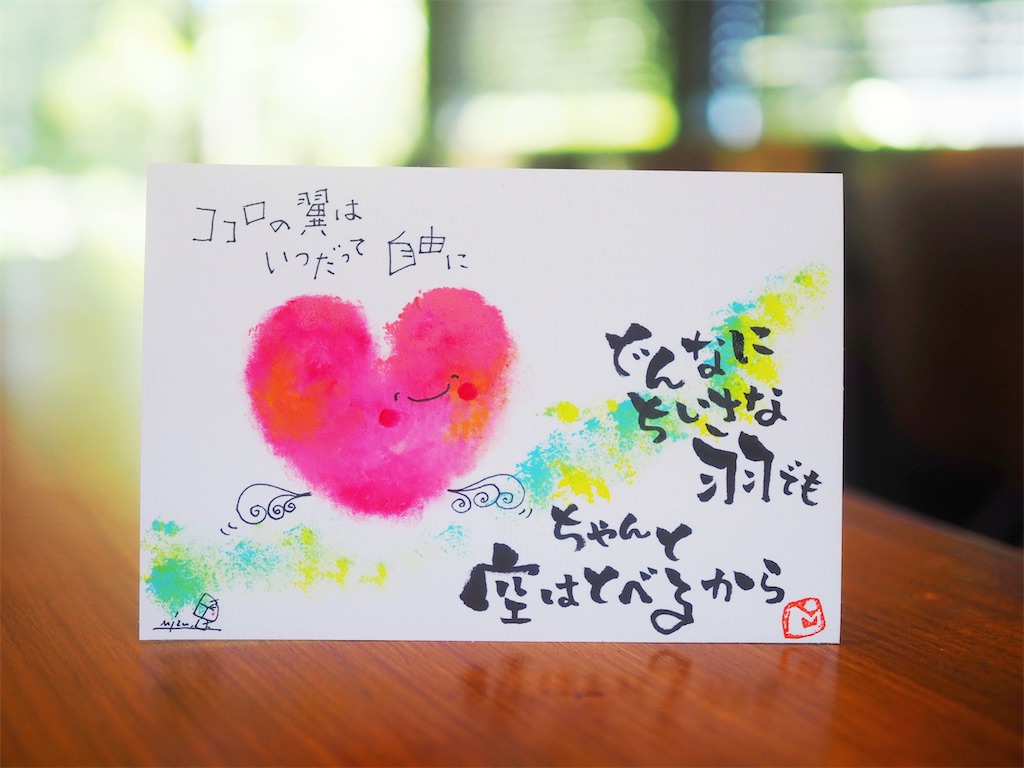 ココロの翼は
いつだって 自由に
どんなに
ちいさな
羽でも
ちゃんと
空はとべるから